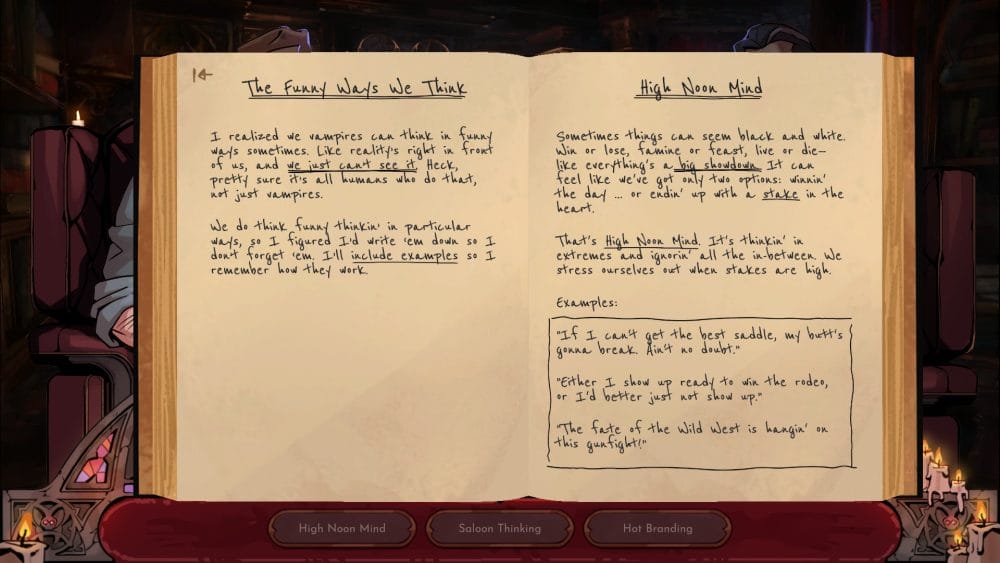 The Funny Ways We Think
I realized we vampires can think in funny
ways sometimes. Like reality's right in front
of us, and we just can't see it. Heck,
pretty sure it's all humans who do that,
not just vampires.
We do think funny thinkin' in particular
ways, so I figured I'd write 'em down so I
don't forget 'em. I'll include examples so I
remember how they work.
High Noon Mind
Sometimes things can seem black and white.
Win or lose, famine or feast, live or die–
like everything's a big showdown. It can
feel like we've got only two options: winnin'
the day ... or endin' up with a stake in the
heart.
That's High Noon Mind. It's thinkin' in
extremes and ignorin' all the in-between. We
stress ourselves out when stakes are high.
Examples:
"If I can't get the best saddle, my butt's
gonna break. Ain't no doubt."
"Either I show up ready to win the rodeo,
or I'd better just not show up."
"The fate of the Wild West is hangin' on
this gunfight!"
High Noon Mind
Saloon Thinking
Hot Branding